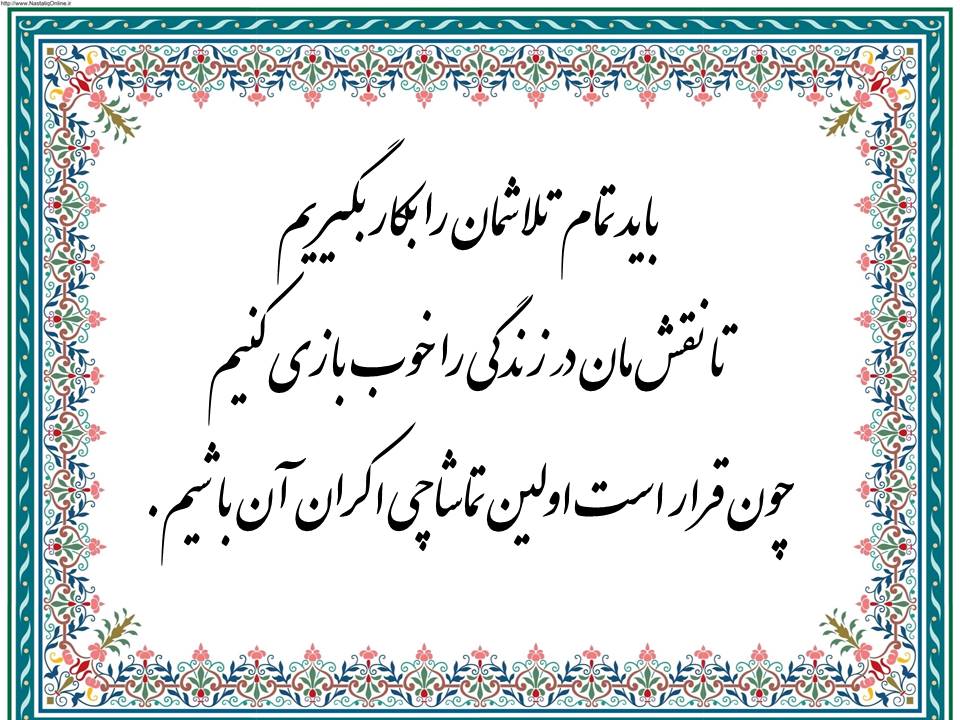 http://www.NastaliqOnline.ir
باید تمام تلاشمان را بکار بگیریم
تا نقش مان در زندگی را خوب بازی کنیم
چون قرار است اولین تماشاچی اکران آن باشیم .